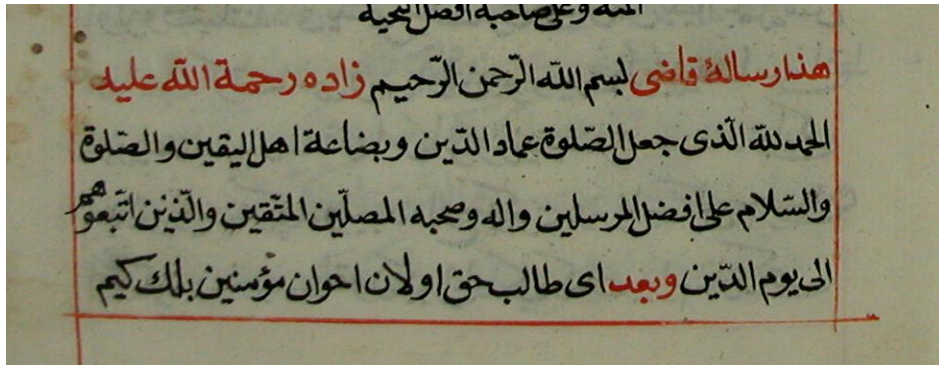 وعلى صاحبه افضل التحية
هذا رسالۀ قاضى بسم الله الرّحمن الرّحيم زاده رحمة الله عليه
الحمد لله الّذى جعل الصّلوة عماد الدّين وبضاعة اهل اليقين والصّلوة
والسّلام على افضل المرسلين واله وصحبه المصلّين المتّقين والّذين اتّبعوهم
الى يوم الدّين وبعد اى طالب حق اولان احوان مؤمنين بلك كيم